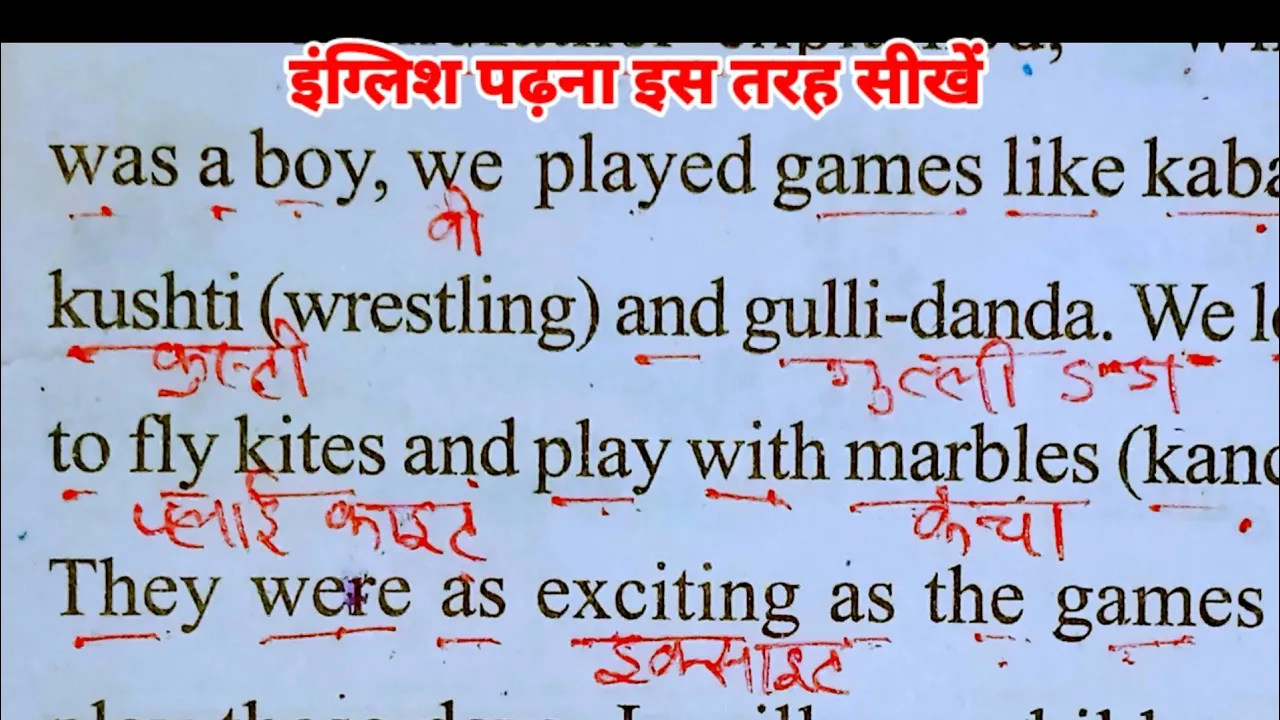 इंग्लिश पढ़ना इस तरह सीखें
was a boy, we played games like kaba
वी
kushti (wrestling) and gulli-danda. We l
कुस्ती गुल्ली डन्डा
to fly kites and play with marbles (kanc
फ्लाई काइट कंचा
They were as exciting as the games
इक्साइट